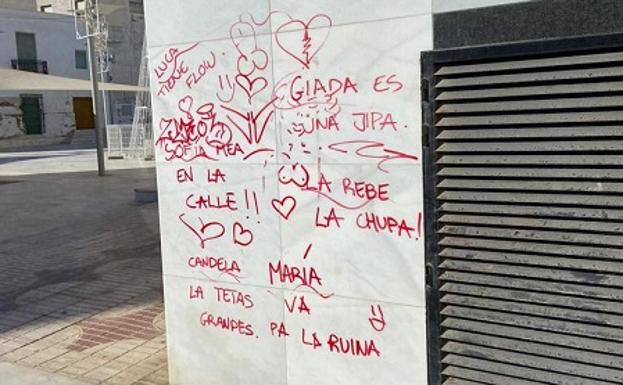 LUCA
TIENE
FLOW
GIADA ES
UNA JIPA.
SOFIA MEA
EN LA
CALLE!!
LA REBE
LA CHUPA!
CANDELA
LA TETAS
GRANDES.
MARÍA
VA
PA LA RUINA